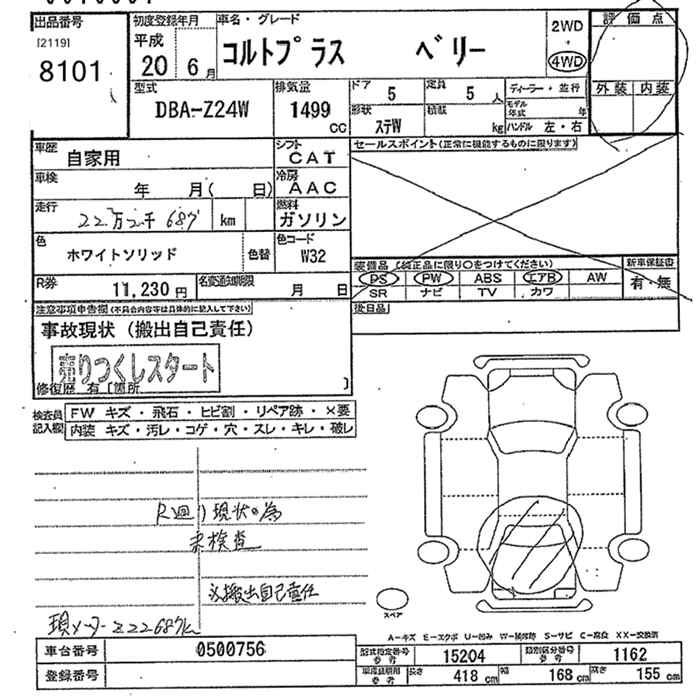 出品番号
[2119]
8101
初度登録年月
平成
20年 6月
車名・グレード
コルトプラス ベリー
2WD
・
4WD
評価点
外装 内装
型式
DBA-Z24W
排気量
1499
CC
ドア
5
定員
5人
形状
ステW
積載
kg
ディーラー・並行
モデル年式 年
ハンドル 左・右
車歴
自家用
シフト
CAT
車検
年 月( 日)
冷房
AAC
走行
22万2千687 km
燃料
ガソリン
色
ホワイトソリッド
色替
色コード
W32
R券
11,230円
名変通知期限
月 日
セールスポイント(正常に機能するものに限ります)
装備品(純正品に限り○をつけてください)
PS PW ABS エアB AW
SR ナビ TV カワ
新車保証書
有・無
後日品
注意事項申告欄(不具合内容等は具体的に記入して下さい)
事故現状(搬出自己責任)
売りつくしスタート
修復歴 有[箇所 ]
検査員記入欄
FW キズ・飛石・ヒビ割・リペア跡・×要
内装 キズ・汚レ・コゲ・穴・スレ・キレ・破レ
R廻り現状の為
未検査
搬出自己責任
現メーター222687km
スペア
A-キズ E-エクボ U-凹み W-補修跡 S-サビ C-腐食 XX-交換済
車台番号
0500756
登録番号
型式指定番号
参考
15204
類別区分番号
参考
1162
車庫証明用
参考
長さ
418cm
幅
168cm
高さ
155cm